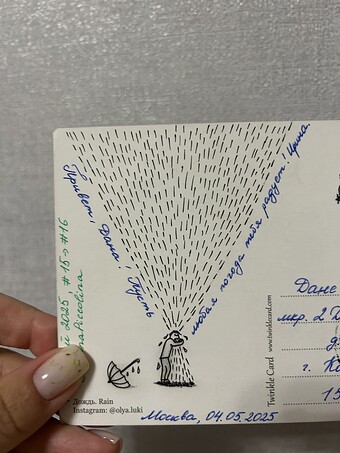 Привет, Дана! Пусть
любая погода тебя радует! Ирина.
2025, #15 → #16
Дождь. Rain
Instagram: @olya.luki
Москва, 04.05.2025
Twinkle Card
www.twinklecard.com
Дане
мкр. 2
г.